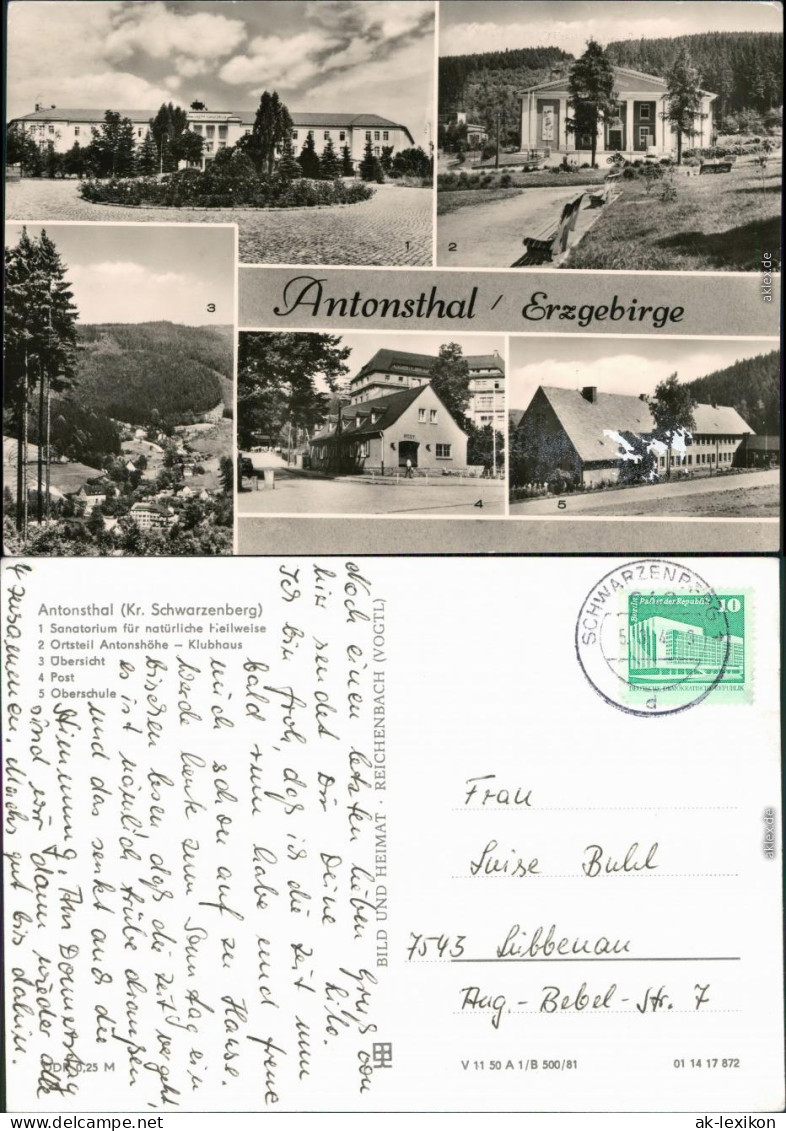 1
2
3
Antonsthal / Erzgebirge
4
5
aklex.de
Antonsthal (Kr. Schwarzenberg)
1 Sanatorium für natürliche Heilweise
2 Ortsteil Antonshöhe – Klubhaus
3 Übersicht
4 Post
5 Oberschule
Noch einen letzten lieben Gruß von
hier sendet Dir Deine
Ich bin froh, daß ich die Zeit nun
bald rum habe und freue
mich schon auf zu Hause.
Werde heute zum Sonntag ein
bißchen lesen, daß die Zeit vergeht,
es ist nämlich trübe draußen
und das senkt auch die
Stimmung. Am Donnerstag
sind wir dann wieder alle
zusammen. Machs gut bis dahin.
BILD UND HEIMAT · REICHENBACH (VOGTL)
SCHWARZENBERG 1
d
Berlin Palast der Republik
10
DEUTSCHE DEMOKRATISCHE REPUBLIK
Frau
Luise Buhl
7543 Lübbenau
Aug.-Bebel-Str. 7
aklex.de
DDR 0,25 M
V 11 50 A 1/B 500/81
01 14 17 872
ak-lexikon